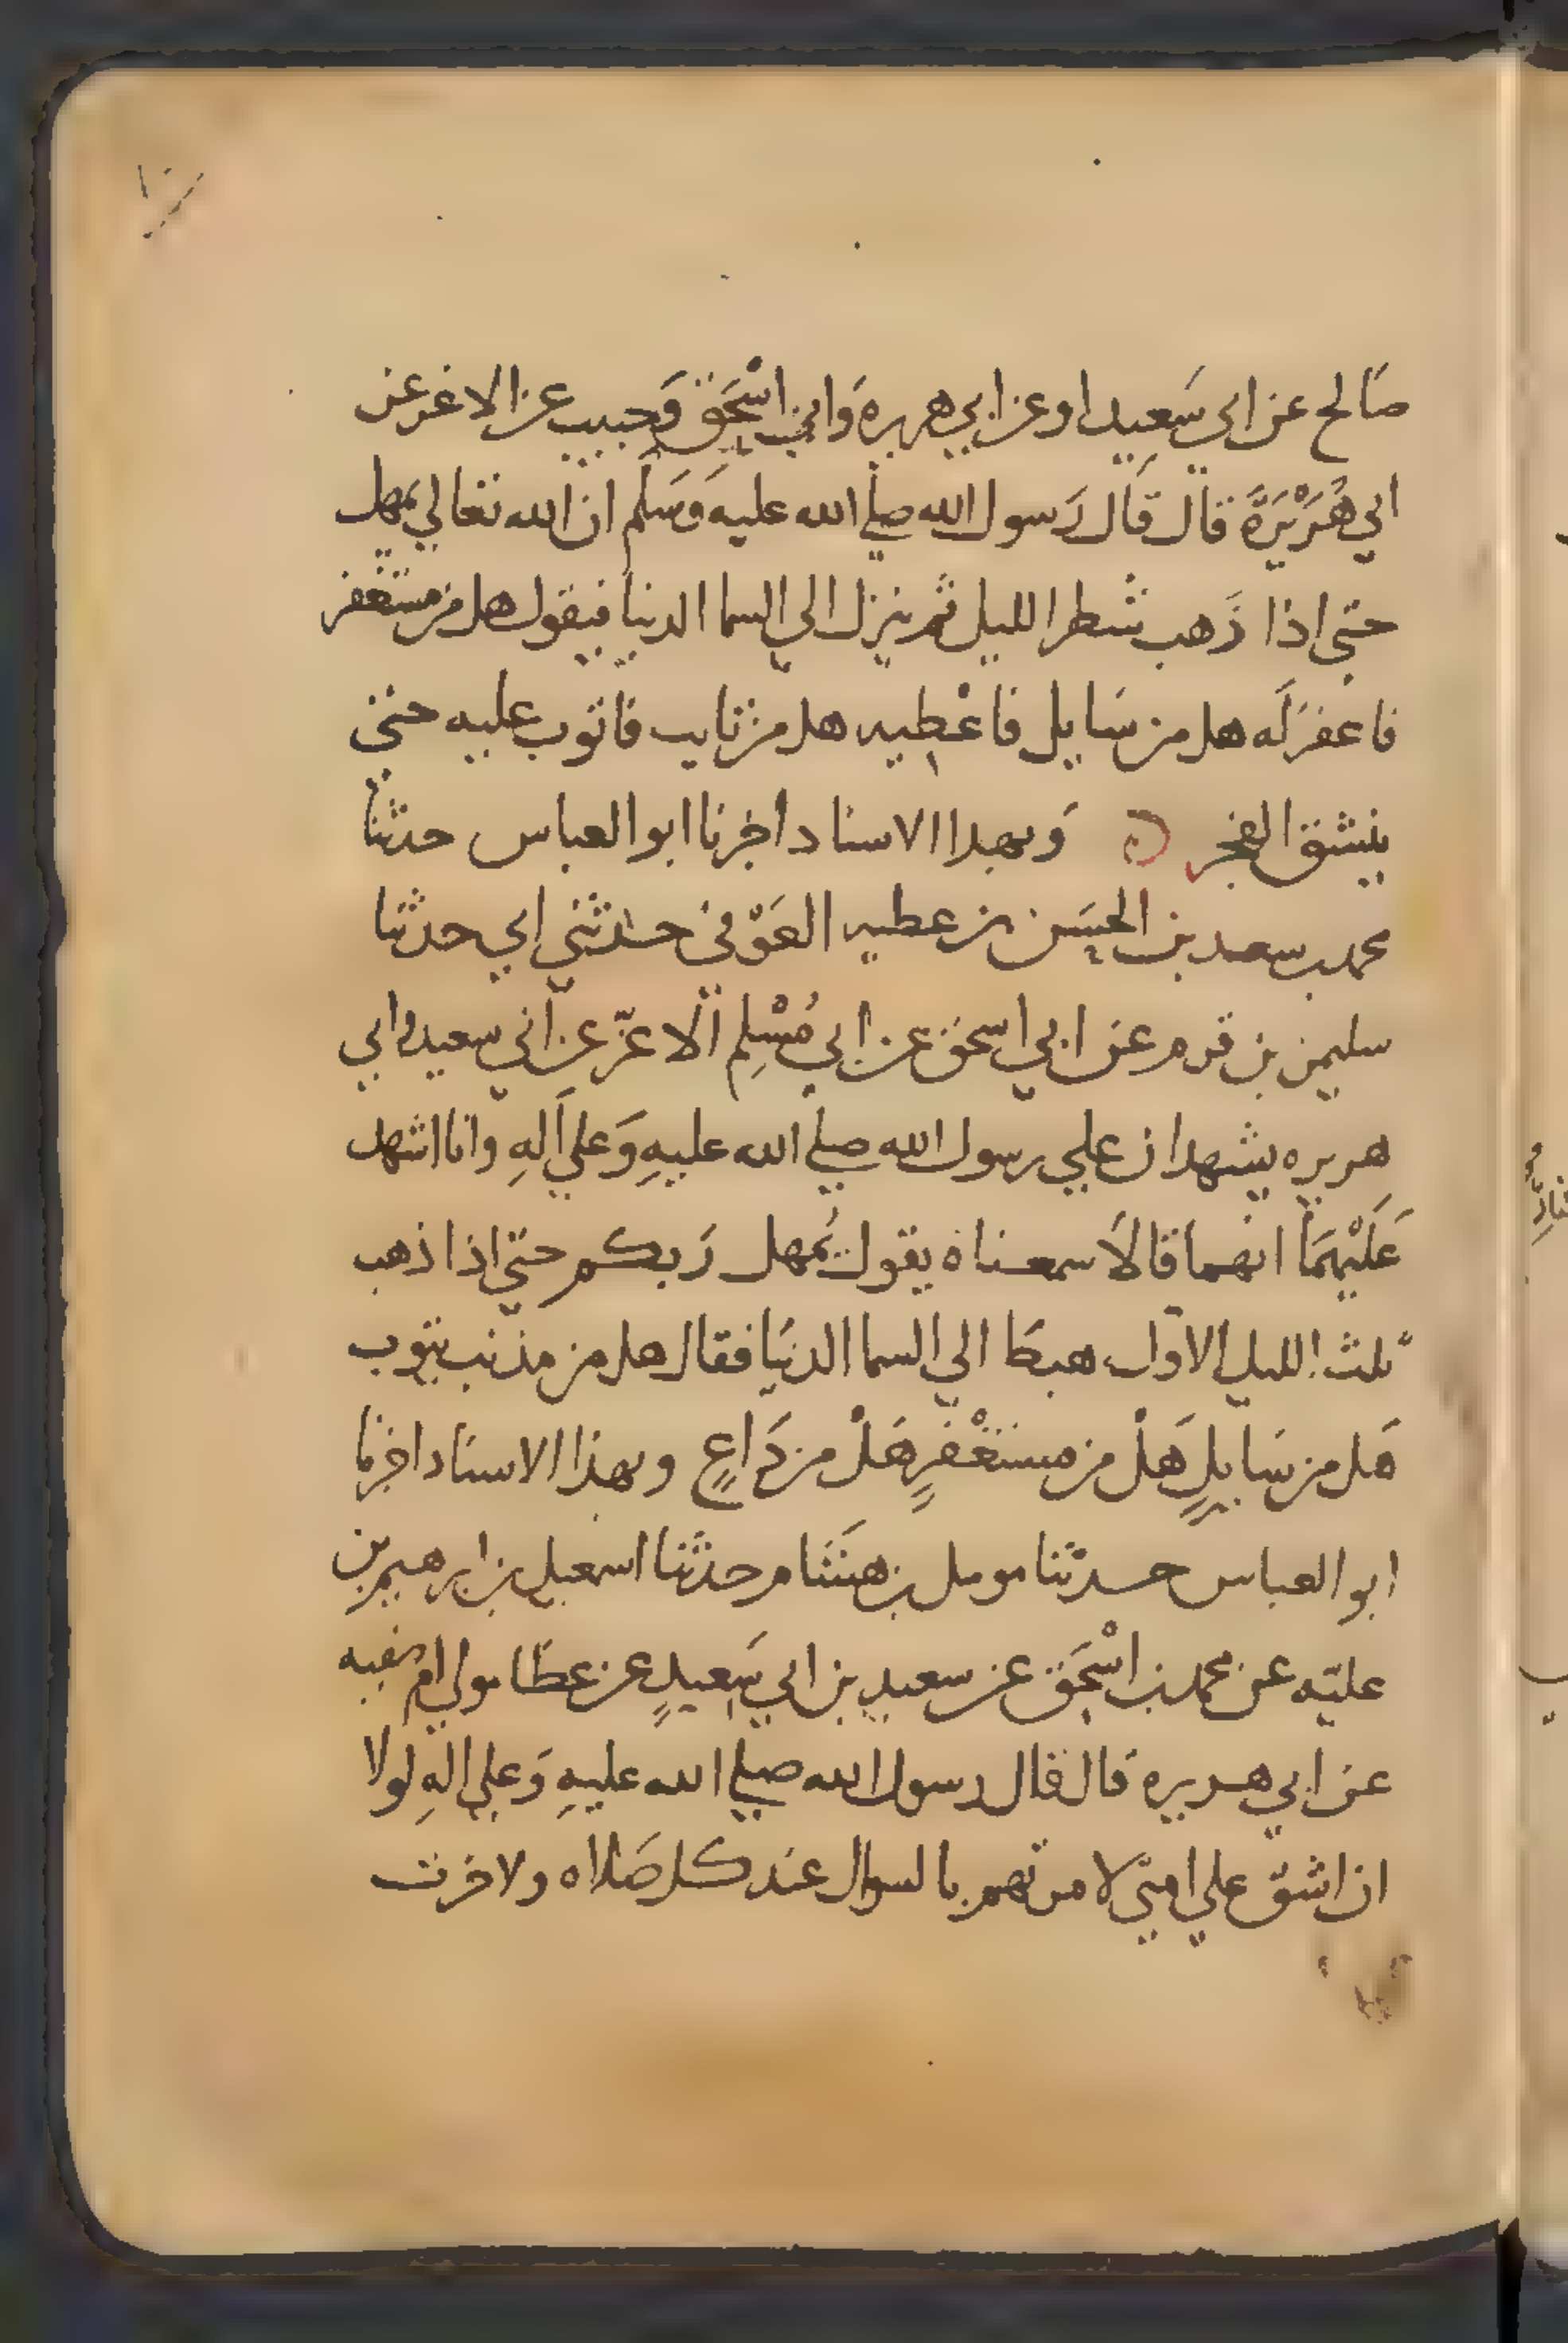 صَالح عن ابي سَعِيد او عن ابي هريره وَابي اسْحَق وَحبيب عن الاغر عن
ابي هُرَيْرَةَ قال قَال رَسول الله صلي الله عليه وَسَلم ان الله تعالي يمهل
حتي اذا ذَهب شطر الليل ثم ينزل الي السما الدنيا فيقول هل من مستغفر
فاغفر لَه هل من سَايل فاعْطِيه هل من تايب فاتوب عليه حتي
ينشق الفجر وَبهذا الاسناد اخبرنا ابو العباس حدثنا
محمد بن سعد بن الحسَن بن عطيه العَوْفي حدثني ابي حدثنا
سليمن بن قرم عن ابي اسحق عن ابي مُسْلِم الاغرّ عن ابي سعيد وابي
هريره يشهدان علي رسول الله صلي الله عليهِ وَعلي الهِ وانا اشهد
عَلَيْهِمَا انهما قالاَ سمعناه يقول يُمهل رَبكم حتي اذا ذهب
ثلث الليل الاول هبطَ الي السما الدنيَا فقال هل من مذنب يتوب
هَل من سَايلٍ هَلْ من مستغْفرٍ هَلْ من دَاعٍ وبهذا الاسناد اخبرنا
ابو العباس حدثنا مومل بن هشَام حدثنا اسمعيل بن ابرهيم بن
عليّه عن محمد بن اسْحَق عن سعيد بن ابي سَعيدٍ عن عطَا مولي ام صفيه
عن ابي هريره قال قال رسول الله صلي الله عليهِ وَعلي الهِ لولا
ان اشقّ علي امتي لامرتهم بالسواك عند كل صَلاه ولاخرت